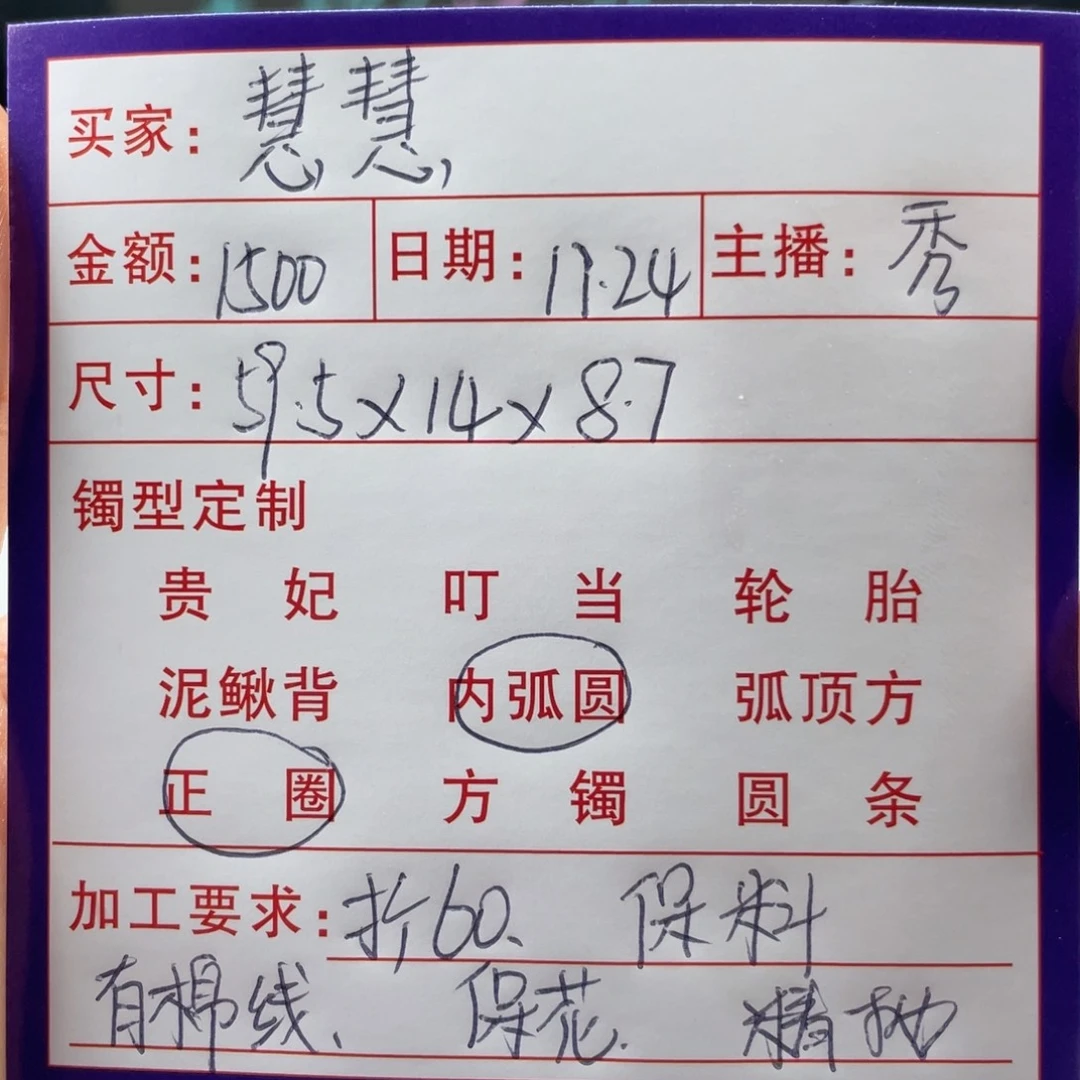 买家：慧慧
金额：1500 日期：11.24 主播：秀
尺寸：59.5×14×8.7
镯型定制
贵妃 叮当 轮胎
泥鳅背 内弧圆 弧顶方
正圈 方镯 圆条
加工要求：折60、保料
有棉线、保花.精抛